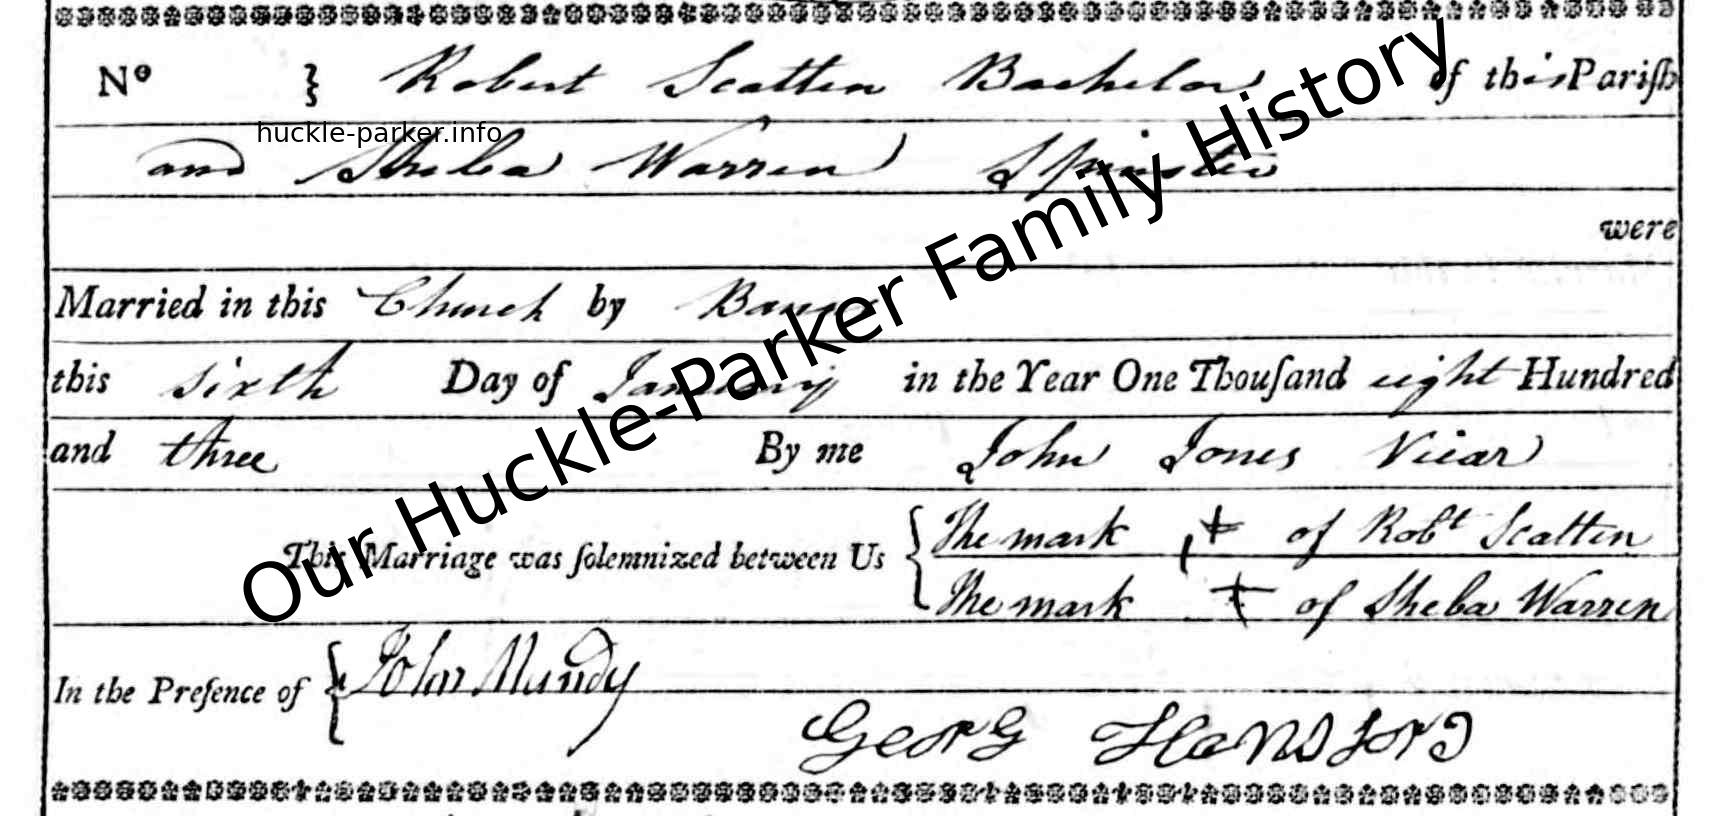 Nº } Robert Scatten Bachelor of this Pariſh
huckle-parker.info
and Sheba Warren Spinster
were
Married in this Church by Banns
this sixth Day of January in the Year One Thouſand eight Hundred
and three By me John Jones Vicar
This Marriage was ſolemnized between Us { The mark + of Robt Scatten
The mark + of Sheba Warren
In the Preſence of { John Mundy
Georg Hansford
Our Huckle-Parker Family History